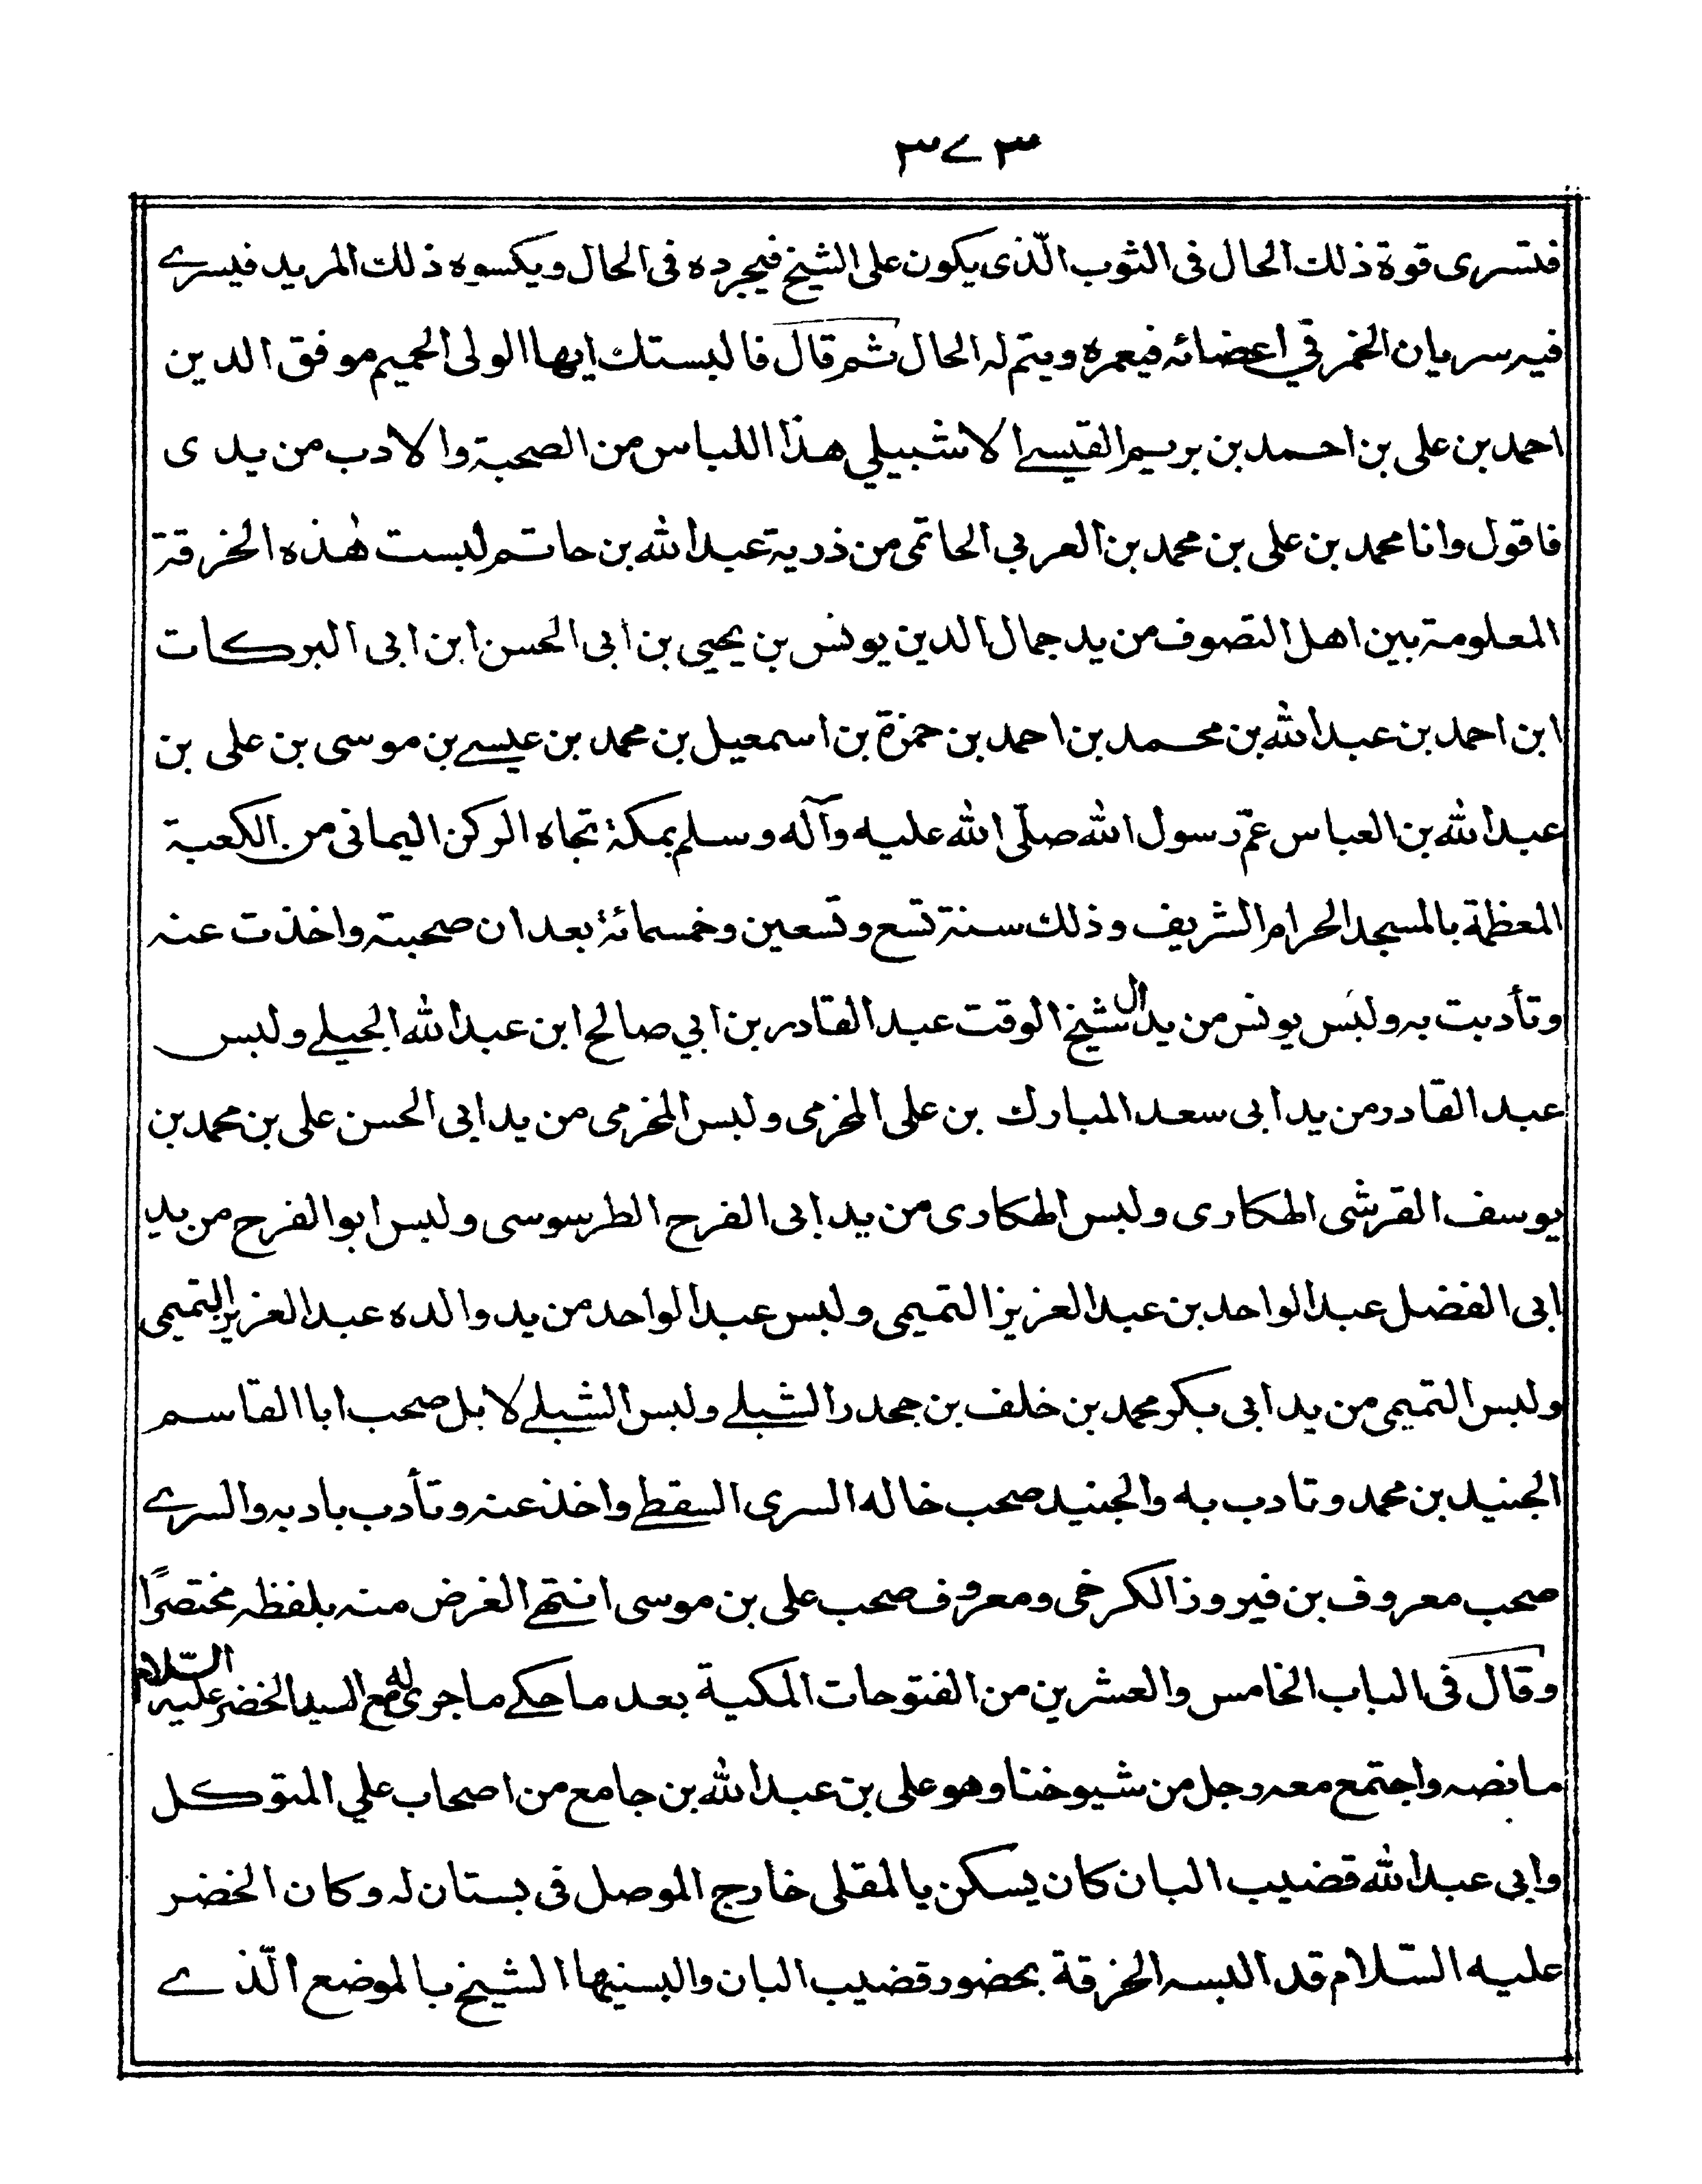 ٣٧٣
فتسرى قوة ذلك الحال فى الثوب الّذى يكون على الشيخ فيجرده فى الحال ويكسوه ذلك المريد فيسرے
فيه سريان الخمر في اعضائه فيعمره ويتم له الحال ثم قال فالبستك ايها الولى الحميم موفق الدين
احمد بن على بن احمد بن بريم القيسے الاشبيلي هذا اللباس من الصحبة والادب من يدى
فاقول وانا محمد بن على بن محمد بن العربى الحاتمى من ذرية عبد الله بن حاتم لبست هٰذه الخرقة
المعلومة بين اهل التصوف من يد جمال الدين يونس بن يحيي بن ابى الحسن ابن ابى البركات
ابن احمد بن عبد الله بن محمد بن احمد بن حمزة بن اسمعيل بن محمد بن عيسے بن موسى بن على بن
عبد الله بن العباس عمّ رسول الله صلّى الله عليه وآله وسلم بمكة تجاه الركن اليمانى من الكعبة
المعظمة بالمسجد الحرام الشريف وذلك سنة تسع وتسعين وخمسمائة بعد ان صحبته واخذت عنه
وتأدبت به ولبس يونس من يد الشيخ الوقت عبد القادر بن ابي صالح ابن عبد الله الجيلے ولبس
عبد القادر من يد ابى سعد المبارك بن على المخرمى ولبس المخرمى من يد ابى الحسن على بن محمد بن
يوسف القرشى الهكارى ولبس الهكارى من يد ابى الفرح الطرسوسى ولبس ابو الفرح من يد
ابى الفضل عبد الواحد بن عبد العزيز التميمى ولبس عبد الواحد من يد والده عبد العزيز التميمى
ولبس التميمى من يد ابى بكر محمد بن خلف بن جحدر الشبلے ولبس الشبلے لا بل صحب ابا القاسم
الجنيد بن محمد وتادب به والجنيد صحب خاله السرى السقطے واخذ عنه وتأدب بادبه والسرے
صحب معروف بن فيروز الكرخى ومعروف صحب على بن موسى انتهے الغرض منه بلفظه مختصرًا
وقال فى الباب الخامس والعشرين من الفتوحات المكية بعد ما حكے ما جرى له مع السيد الخضر عليه السّلام
ما نصه واجتمع معه رجل من شيوخنا وهو على بن عبد الله بن جامع من اصحاب علي المتوكل
وابى عبد الله قضيب البان كان يسكن بالمقلى خارج الموصل فى بستان له وكان الخضر
عليه السّلام قد البسه الخرقة بحضور قضيب البان والبسنيها الشيخ بالموضع الّذے